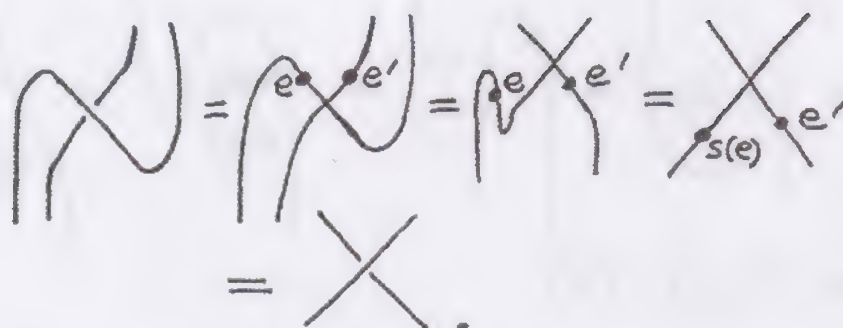 = e e' = e e' = s(e) e'
=